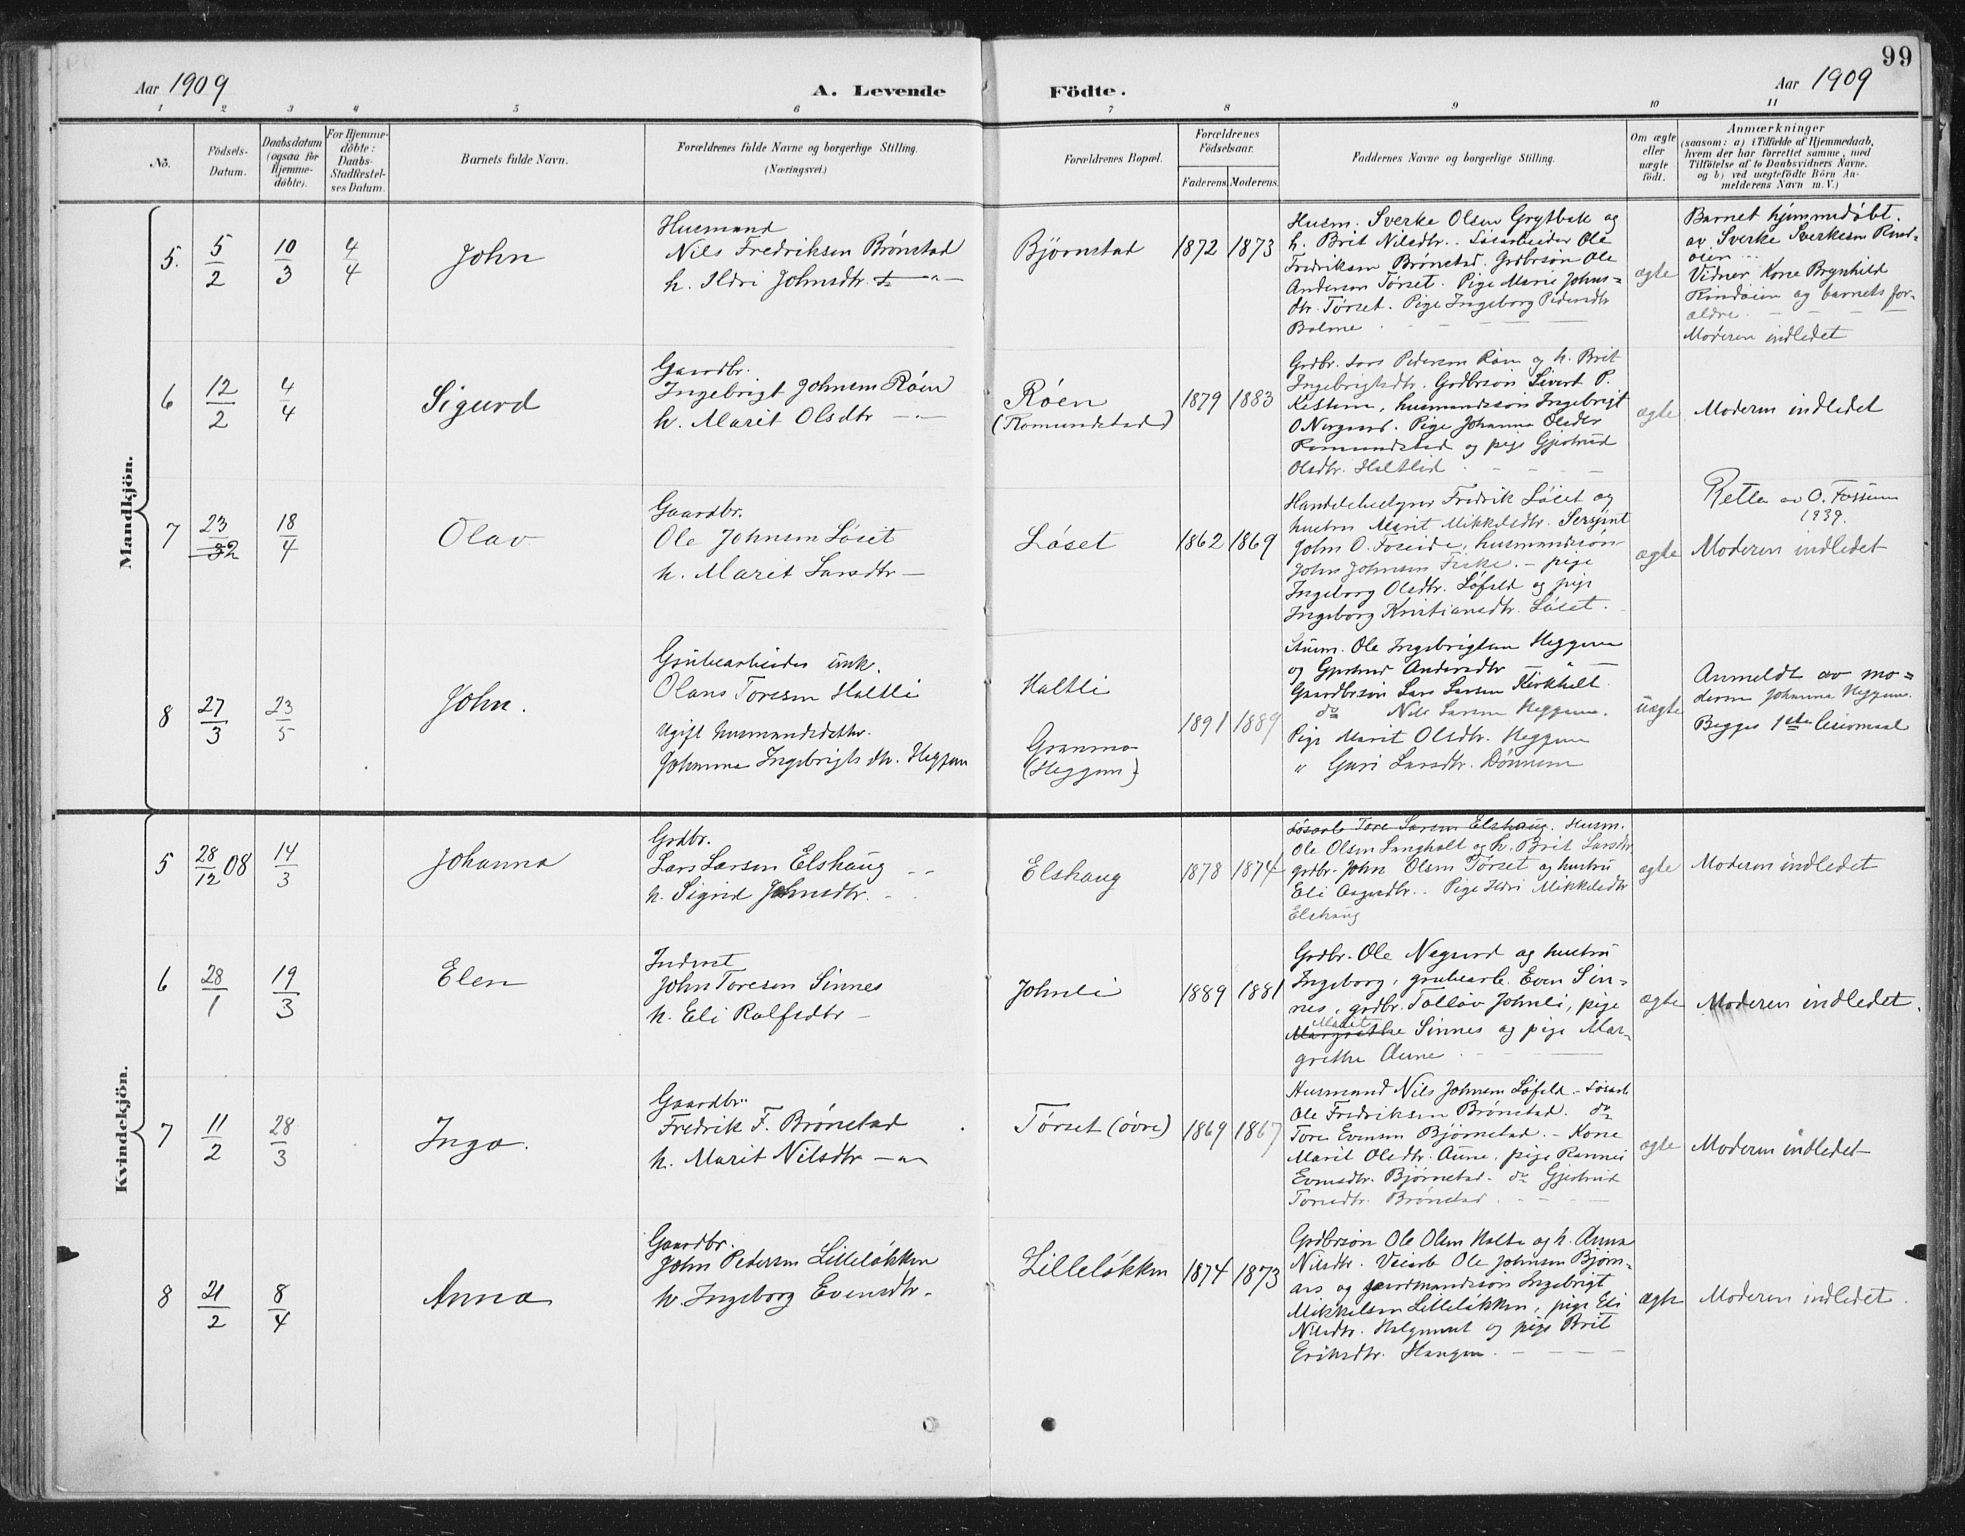 99
Aar 1909
A. Levende
Födte.
Aar 1909
1 2 3 4 5 6 7 8 9 10 11
No.
Födsels-
Datum.
Daabsdatum
(ogsaa for
Hjemme-
döbte).
For Hjemme-
döbte:
Daabs-
Stadfæstel-
ses Datum.
Barnets fulde Navn.
Forældrenes fulde Navne og borgerlige Stilling.
(Næringsvei.)
Forældrenes Bopæl.
Forældrenes
Födselsaar.
Faderens. Moderens.
Faddernes Navne og borgerlige Stilling.
Om ægte
eller
uægte
födt.
Anmærkninger
(saasom: a) i Tilfælde af Hjemmedaab,
hvem der har forrettet samme, med
Tilföielse af to Daabsvidners Navne.
og b) ved uægtefödte Börn An-
melderens Navn m. V.)
Mandkjön.
5. 5/2 10/3 4/4 John
Husmand
Nils Fredriksen Brønstad
h. Ildri Johnsdtr.
Bjørnstad
1872 1873
Husm. Sverke Olsen Grytbak og
h. Brit Nilsdtr. Løsarbeider Ole
Fredriksen Brønstad. Grdbrsøn Ole
Andersen Tørset. Pige Marie Johns-
dtr. Tørset. Pige Ingeborg Pedersdtr
Bolme
ægte
Barnet hjemmedøbt.
av Sverke Sverkesen Rind-
øien
Vidner Kone Brynhild
Rindøien og barnets for-
ældre
Moderen indledet
6 12/2 4/4 Sigurd
Gaardbr.
Ingebrigt Johnsen Røen
h. Marit Olsdtr
Røen
(Romundstad)
1879 1883
Grdbr. Lars Pedersen Røen og h. Brit
Ingebrigtsdtr. Grdbrsøn Sivert P.
husmandssøn Ingebrigt
Pige Johanna Olsdtr
Romundstad og pige Gjertrud
Olsdtr. Haltlid
ægte
Moderen indledet
7 23/2 18/4 Olav
Gaardbr.
Ole Johnsen Løset
h. Marit Larsdtr
Løset
1862 1869
Fredrik Løset og
hustru Marit Mikkelsdtr. Sersjant
John O. Foseide, husmandssøn
John Johnsen Fiske. – pige
Ingeborg Olsdtr. Løfald og pige
Ingeborg Kristiansdtr. Løset.
ægte
Retta av O. Fossum
1939.
Moderen indledet
8 27/3 23/5 John.
Grubearbeider unk.
Olaus Toresen Haltli
Ugift husmandsdatter
Johanna Ingebrigtsdtr. Heggem
Haltli
Granmo
(Heggem)
1891 1889
Husm. Ole Ingebrigtsen Heggem
og Gjertrud Andersdtr
Gaardbrsøn Lars Larsen Kirkholt.
do Nils Larsen Heggem.
Pige Marit Olsdtr. Heggem
" Guri Larsdtr. Dønnem
uægte
Anmeldt av mo-
deren Johanna Heggem.
Begges 1ste leiermaal
Kvindekjön.
5 28/12 08 14/3 Johanna
Grdbr.
Lars Larsen Elshaug
h. Sigrid Johnsdtr.
Elshaug
1878 1874
Løsarb Tore Larsen Elshaug. Husm.
Ole Olsen Langholt og h. Brit Larsdtr
grdbr. John Olsen Tørset og hustru
Eli Aagesdtr. Pige Ildri Mikkelsdtr
Elshaug
ægte
Moderen indledet
6 28/1 19/3 Elen
Inderst
John Toresen Sinnes
h. Eli Rolfsdtr
Johnli
1889 1881
Grdbr. Ole Negaard og hustru
Ingeborg, grubearb. Even Sin-
nes, grdbr. Tollov Johnli, pige
Marit
Margrethe Sinnes og pige Mar-
grethe Aune
ægte
Moderen indledet.
7 11/2 28/3 Inga.
Gaardbr.
Fredrik F. Brønstad
h. Marit Nilsdtr
Tørset (øvre)
1869 1867
Husmand Nils Johnsen Løfald. Løsarb
Ole Fredriksen Brønstad. do
Tore Evensen Bjørnstad. – Kone
Marit Olsdtr. Aune, pige Rannei
Evensdtr. Bjørnstad. do Gjertrud
Toresdtr. Brønstad
ægte
Moderen indledet
8 21/2 8/4 Anna
Gaardbr.
John Pedersen Lilleløkken
h. Ingeborg Evensdtr.
Lilleløkken
1874 1873
Grdbrsøn Ole Olsen Holte og h. Anna
Nilsdtr. Veiarb Ole Johnsen Bjørn-
aas og gaardmandssøn Ingebrigt
Mikkelsen Lilleløkken, pige Eli
Nilsdtr. og pige Brit
Eriksdtr. Haugen
ægte
Moderen indledet.